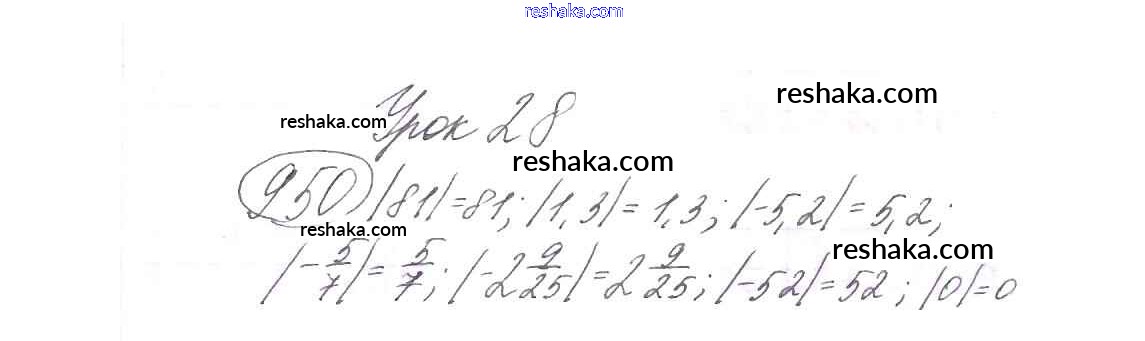 reshaka.com
reshaka.com
Урок 28
reshaka.com
reshaka.com
950 |81|=81; |1,3|=1,3; |-5,2|=5,2;
reshaka.com
reshaka.com
|-5/7|=5/7; |-2 9/25|=2 9/25; |-52|=52; |0|=0